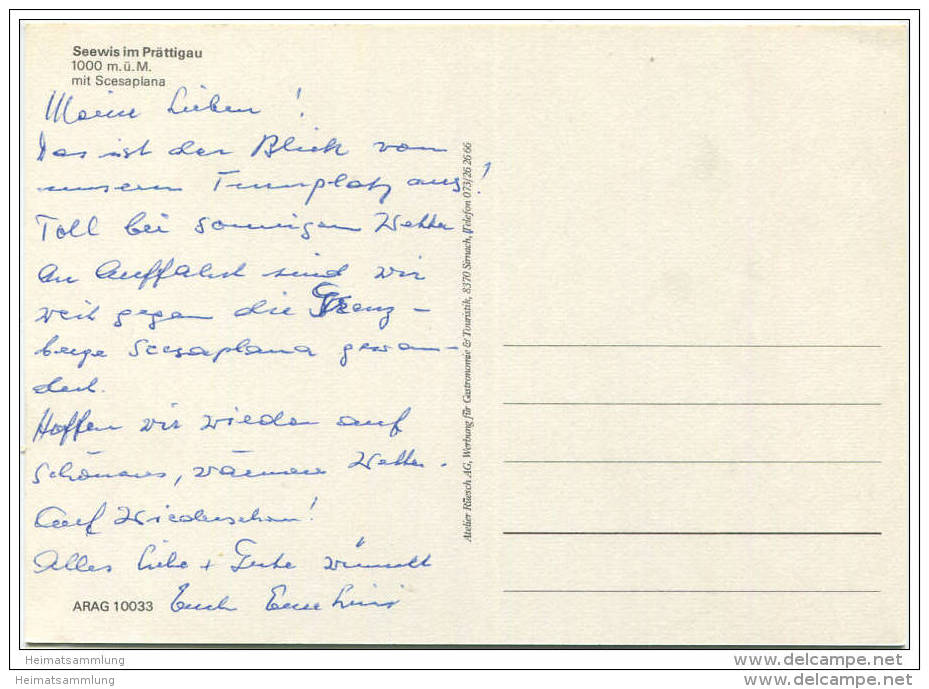 Seewis im Prättigau
1000 m.ü.M.
mit Scesaplana
Meine Lieben!
Das ist der Blick von
unserm Tennisplatz aus!
Toll bei sonnigem Wetter
An Auffahrt sind wir
weit gegen die Grenz-
berge Scesaplana gewan-
dert.
Hoffen wir wieder auf
schöneres, wärmeres Wetter.
Auf Wiedersehen!
Alles Liebe + Gute wünscht
Euch Eure
ARAG 10033
Atelier Rüesch AG, Werbung für Gastronomie & Touristik, 8370 Sirnach, Telefon 073/26 26 66
Heimatsammlung
Heimatsammlung
www.delcampe.net
www.delcampe.net